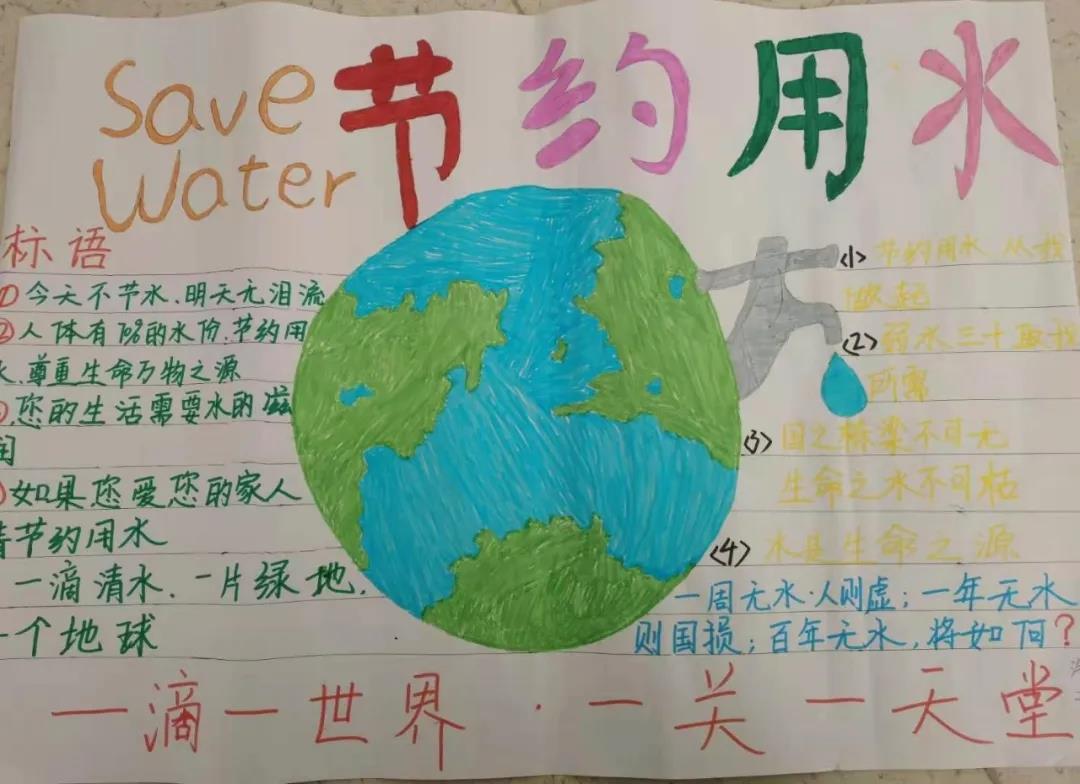 Save
Water
节约用水
标语
① 今天不节水、明天无泪流
② 人体有1%的水份、节约用
水、尊重生命万物之源
您的生活需要水的滋
润
如果您爱您的家人
请节约用水
一滴清水、一片绿地、
一个地球
<1> 节约用水 从我
做起
<2> 弱水三千取我
所需
<3> 国之栋梁不可无
生命之水不可枯
<4> 水是生命之源
一周无水·人则虚；一年无水
则国损；百年无水，将如何？
一滴一世界·一关一天堂